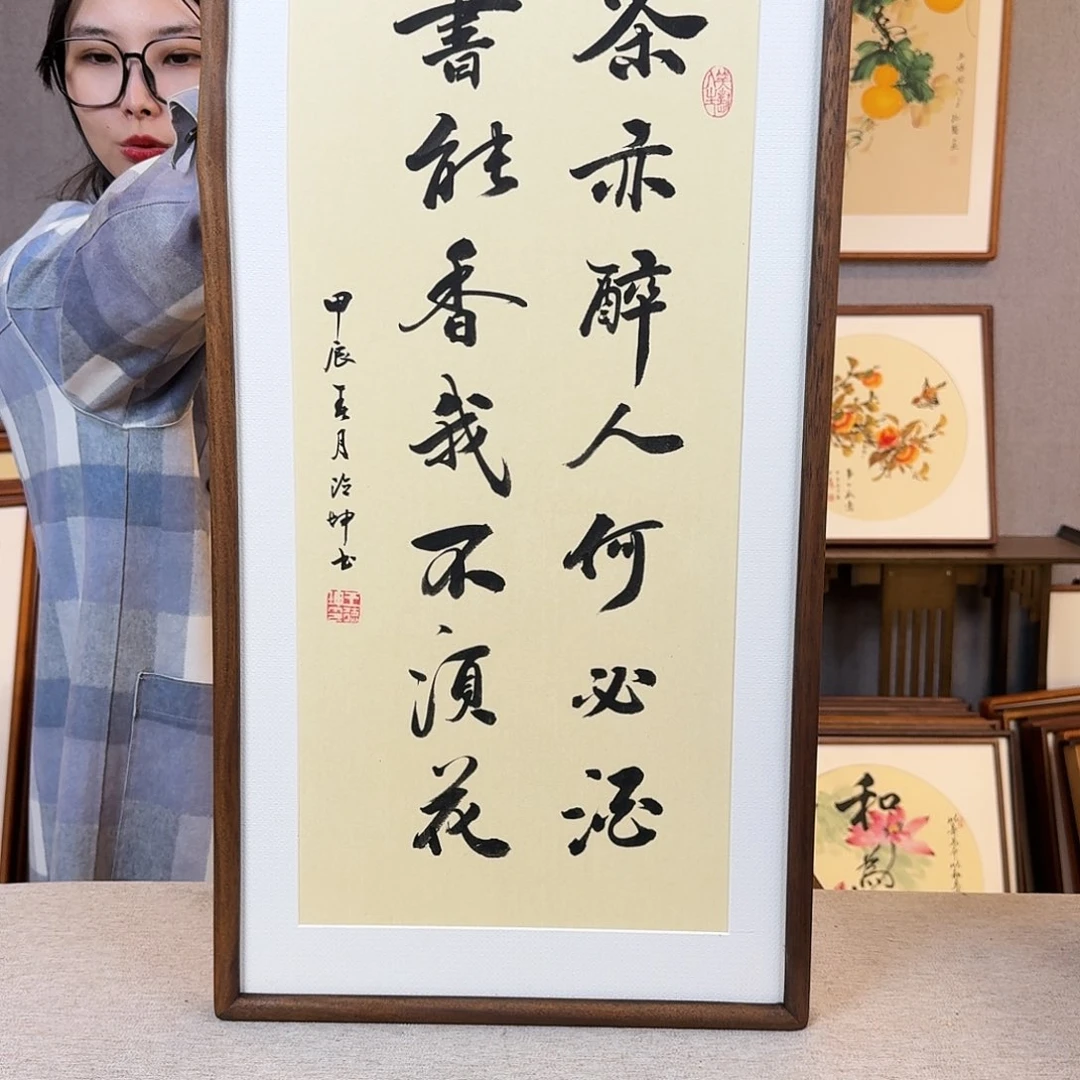 茶亦醉人何必酒
書能香我不須花
甲辰夏月冷坤书
和